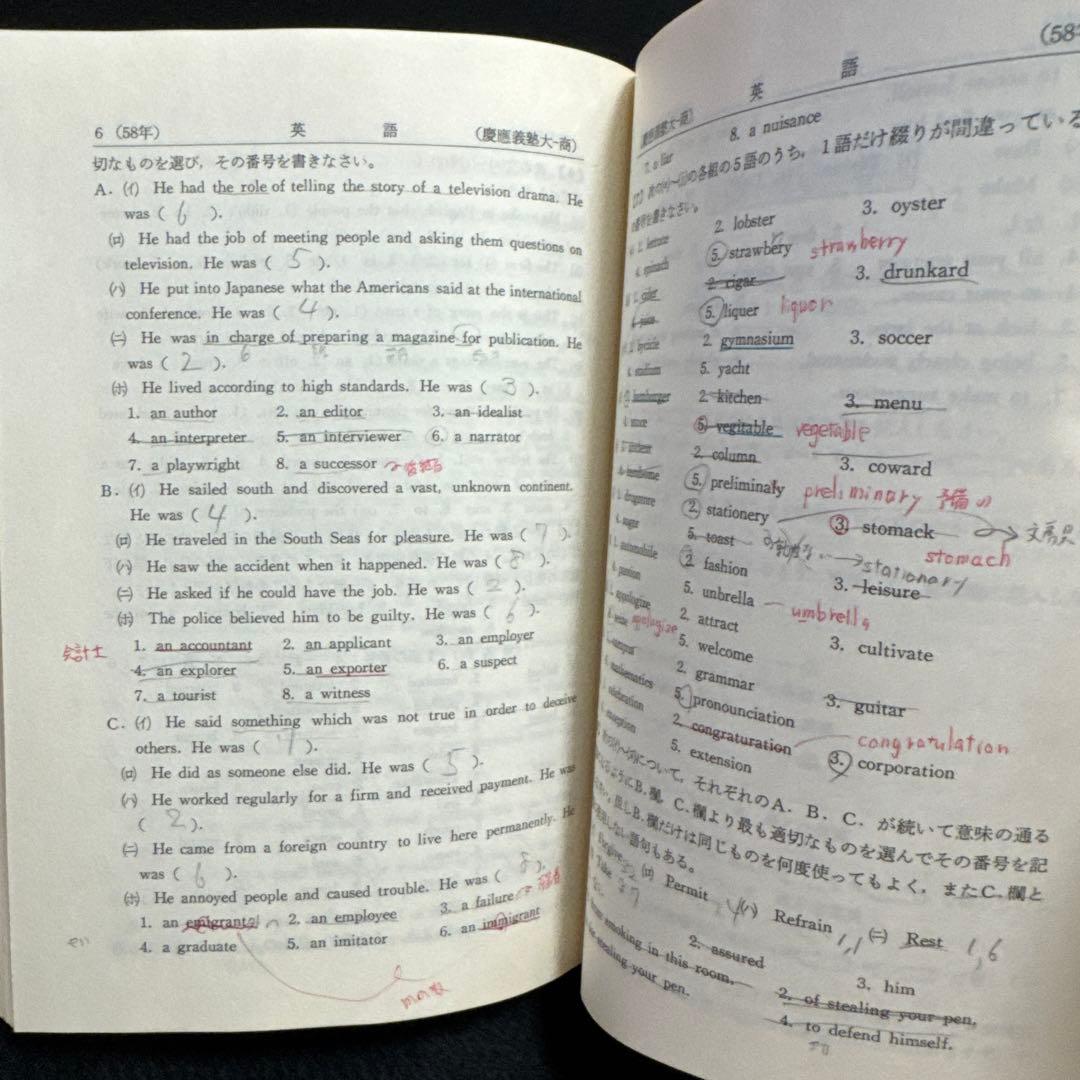 6 (58年) 英 語 (慶應義塾大-商)
切なものを選び,その番号を書きなさい。
A. (イ) He had the role of telling the story of a television drama. He
was ( 6 ).
(ロ) He had the job of meeting people and asking them questions on
television. He was ( 5 ).
(ハ) He put into Japanese what the Americans said at the international
conference. He was ( 4 ).
(ニ) He was in charge of preparing a magazine for publication. He
was ( 2 ). 6
(ホ) He lived according to high standards. He was ( 3 ).
1. an author 2. an editor 3. an idealist
4. an interpreter 5. an interviewer 6. a narrator
7. a playwright 8. a successor
B. (イ) He sailed south and discovered a vast, unknown continent.
He was ( 4 ).
(ロ) He traveled in the South Seas for pleasure. He was ( 7 ).
(ハ) He saw the accident when it happened. He was ( 8 ).
(ニ) He asked if he could have the job. He was ( 2 ).
(ホ) The police believed him to be guilty. He was ( 6 ).
会計士 1. an accountant 2. an applicant 3. an employer
4. an explorer 5. an exporter 6. a suspect
7. a tourist 8. a witness
C. (イ) He said something which was not true in order to deceive
others. He was ( 7 ).
(ロ) He did as someone else did. He was ( 5 ).
(ハ) He worked regularly for a firm and received payment. He was
( 2 ).
(ニ) He came from a foreign country to live here permanently. He
was ( 6 ).
(ホ) He annoyed people and caused trouble. He was ( 8 ).
1. an emigrant 2. an employee 3. a failure
4. a graduate 5. an imitator 6. an immigrant
英 語 (58
慶應義塾大-商)
7. a liar 8. a nuisance
の各組の5語のうち,1語だけ綴りが間違っている
番号を書きなさい。
2. lobster 3. oyster
4. spinach 5. strawbery strawberry
1. cider 2. cigar 3. drunkard
4. juice 5. liquer liquor
2. gymnasium 3. soccer
4. stadium 5. yacht
1. hamburger 2. kitchen 3. menu
5. vegitable vegetable
2. column 3. coward
5. preliminaly preliminary 予備の
2. stationery 3. stomack 文房具
4. sugar 5. toast stomach
1. automobile 2. fashion stationary 3. leisure
4. passion 5. unbrella umbrella
2. attract 3. cultivate
apologize 5. welcome
2. grammar 3. guitar
4. mathematics 5. pronounciation
2. congraturation congratulation 3. corporation
5. extension
について,それぞれのA.B.C.が続いて意味の通る
ようにB.欄,C.欄より最も適切なものを選んでその番号を記
但しB.欄だけは同じものを何度使ってもよく,またC.欄と
しない語句もある。
(ロ) Permit (ハ) Refrain 1,1 (ニ) Rest 1,6
2. assured 3. him
smoking in this room. 2. of stealing your pen.
stealing your pen. 4. to defend himself.